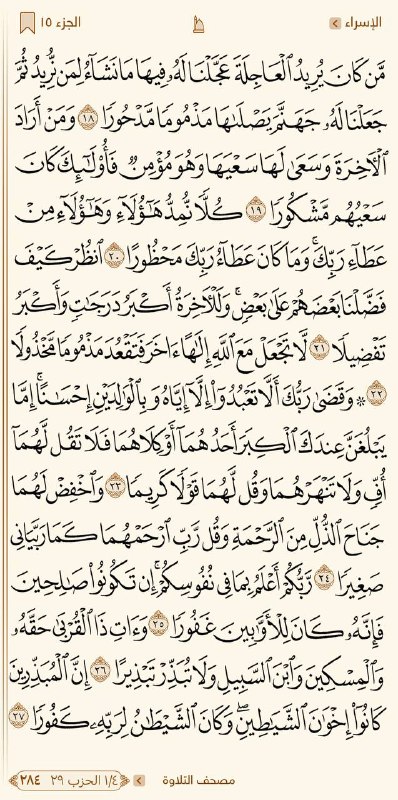 الإسراء
الجزء ١٥
مَّن كَانَ يُرِيدُ ٱلۡعَاجِلَةَ عَجَّلۡنَا لَهُۥ فِيهَا مَا نَشَآءُ لِمَن نُّرِيدُ ثُمَّ
جَعَلۡنَا لَهُۥ جَهَنَّمَ يَصۡلَىٰهَا مَذۡمُومٗا مَّدۡحُورٗا ١٨ وَمَنۡ أَرَادَ
ٱلۡأٓخِرَةَ وَسَعَىٰ لَهَا سَعۡيَهَا وَهُوَ مُؤۡمِنٞ فَأُوْلَٰٓئِكَ كَانَ
سَعۡيُهُم مَّشۡكُورٗا ١٩ كُلّٗا نُّمِدُّ هَٰٓؤُلَآءِ وَهَٰٓؤُلَآءِ مِنۡ
عَطَآءِ رَبِّكَۚ وَمَا كَانَ عَطَآءُ رَبِّكَ مَحۡظُورًا ٢٠ ٱنظُرۡ كَيۡفَ
فَضَّلۡنَا بَعۡضَهُمۡ عَلَىٰ بَعۡضٖۚ وَلَلۡأٓخِرَةُ أَكۡبَرُ دَرَجَٰتٖ وَأَكۡبَرُ
تَفۡضِيلٗا ٢١ لَّا تَجۡعَلۡ مَعَ ٱللَّهِ إِلَٰهًا ءَاخَرَ فَتَقۡعُدَ مَذۡمُومٗا مَّخۡذُولٗا
٢٢ ۞ وَقَضَىٰ رَبُّكَ أَلَّا تَعۡبُدُوٓاْ إِلَّآ إِيَّاهُ وَبِٱلۡوَٰلِدَيۡنِ إِحۡسَٰنًاۚ إِمَّا
يَبۡلُغَنَّ عِندَكَ ٱلۡكِبَرَ أَحَدُهُمَآ أَوۡ كِلَاهُمَا فَلَا تَقُل لَّهُمَآ
أُفّٖ وَلَا تَنۡهَرۡهُمَا وَقُل لَّهُمَا قَوۡلٗا كَرِيمٗا ٢٣ وَٱخۡفِضۡ لَهُمَا
جَنَاحَ ٱلذُّلِّ مِنَ ٱلرَّحۡمَةِ وَقُل رَّبِّ ٱرۡحَمۡهُمَا كَمَا رَبَّيَانِي
صَغِيرٗا ٢٤ رَّبُّكُمۡ أَعۡلَمُ بِمَا فِي نُفُوسِكُمۡۚ إِن تَكُونُواْ صَٰلِحِينَ
فَإِنَّهُۥ كَانَ لِلۡأَوَّٰبِينَ غَفُورٗا ٢٥ وَءَاتِ ذَا ٱلۡقُرۡبَىٰ حَقَّهُۥ
وَٱلۡمِسۡكِينَ وَٱبۡنَ ٱلسَّبِيلِ وَلَا تُبَذِّرۡ تَبۡذِيرًا ٢٦ إِنَّ ٱلۡمُبَذِّرِينَ
كَانُوٓاْ إِخۡوَٰنَ ٱلشَّيَٰطِينِۖ وَكَانَ ٱلشَّيۡطَٰنُ لِرَبِّهِۦ كَفُورٗا ٢٧
مصحف التلاوة
١/٤ الحزب ٢٩
٢٨٤